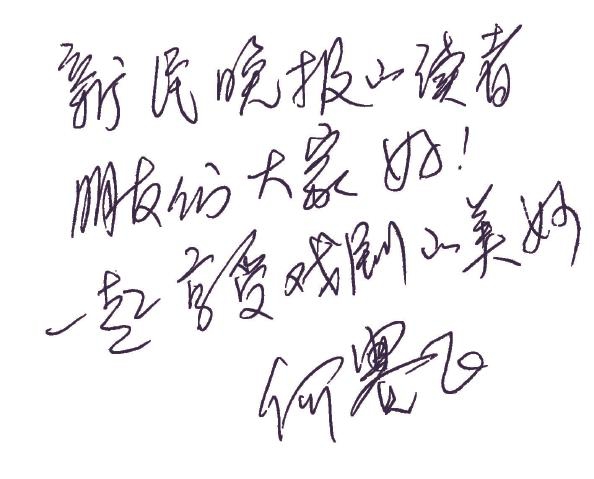 新民晚报的读者
朋友们大家好！
一起享受戏剧的美妙
何赛飞